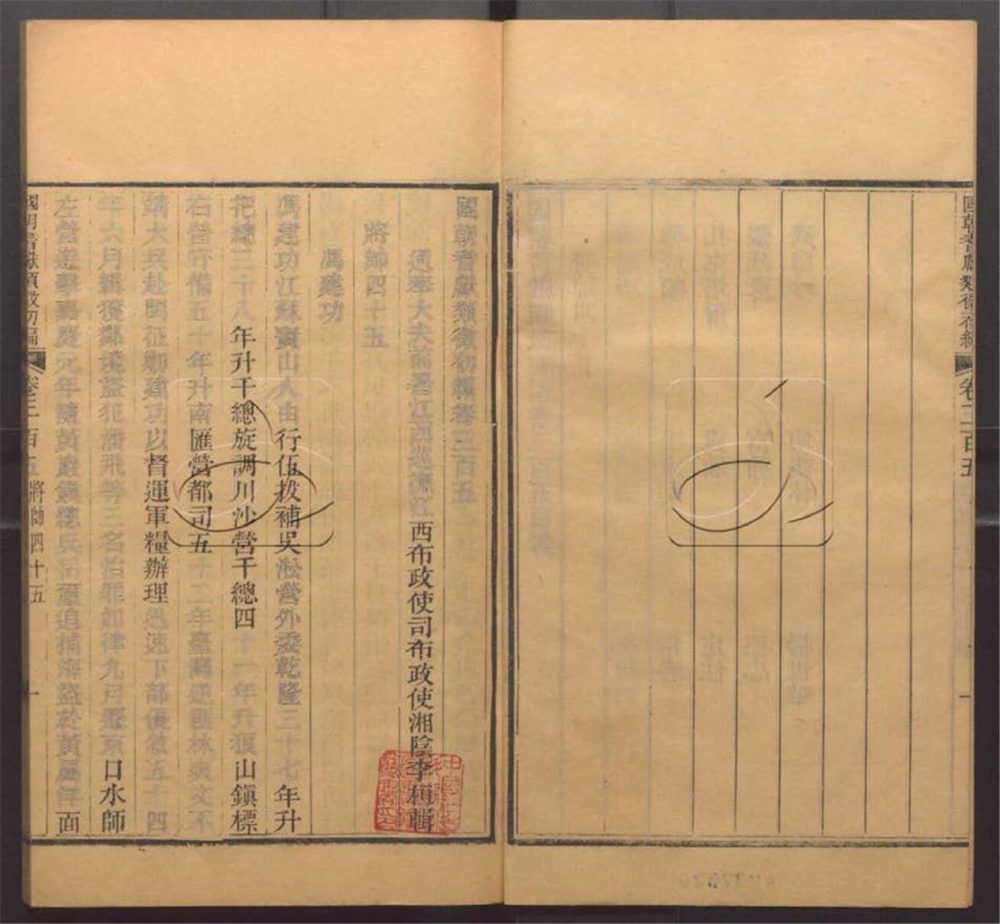 國朝耆獻類徵初編
卷三百五
一
國朝耆獻類徵初編卷三百五
通奉大夫前署江西巡撫江西布政使司布政使湘陰李桓輯
將帥四十五
馮建功
馮建功江蘇寶山人由行伍拔補吳淞營外委乾隆三十七年升
把總三十八年升千總旋調川沙營千總四十一年升狼山鎮標
右營守備五十年升南匯營都司五十二年臺灣逆匪林爽文不
靖大兵赴閩征勦建功以督運軍糧辦理迅速下部議敘五十四
年六月緝獲鄰境盜犯潘飛等三名治罪如律九月遷京口水師
左營遊擊嘉慶元年隨黃巖鎮總兵岳璽追捕海盜於黃隴洋面
國朝耆獻類徵初編
卷三百五 將帥四十五
一